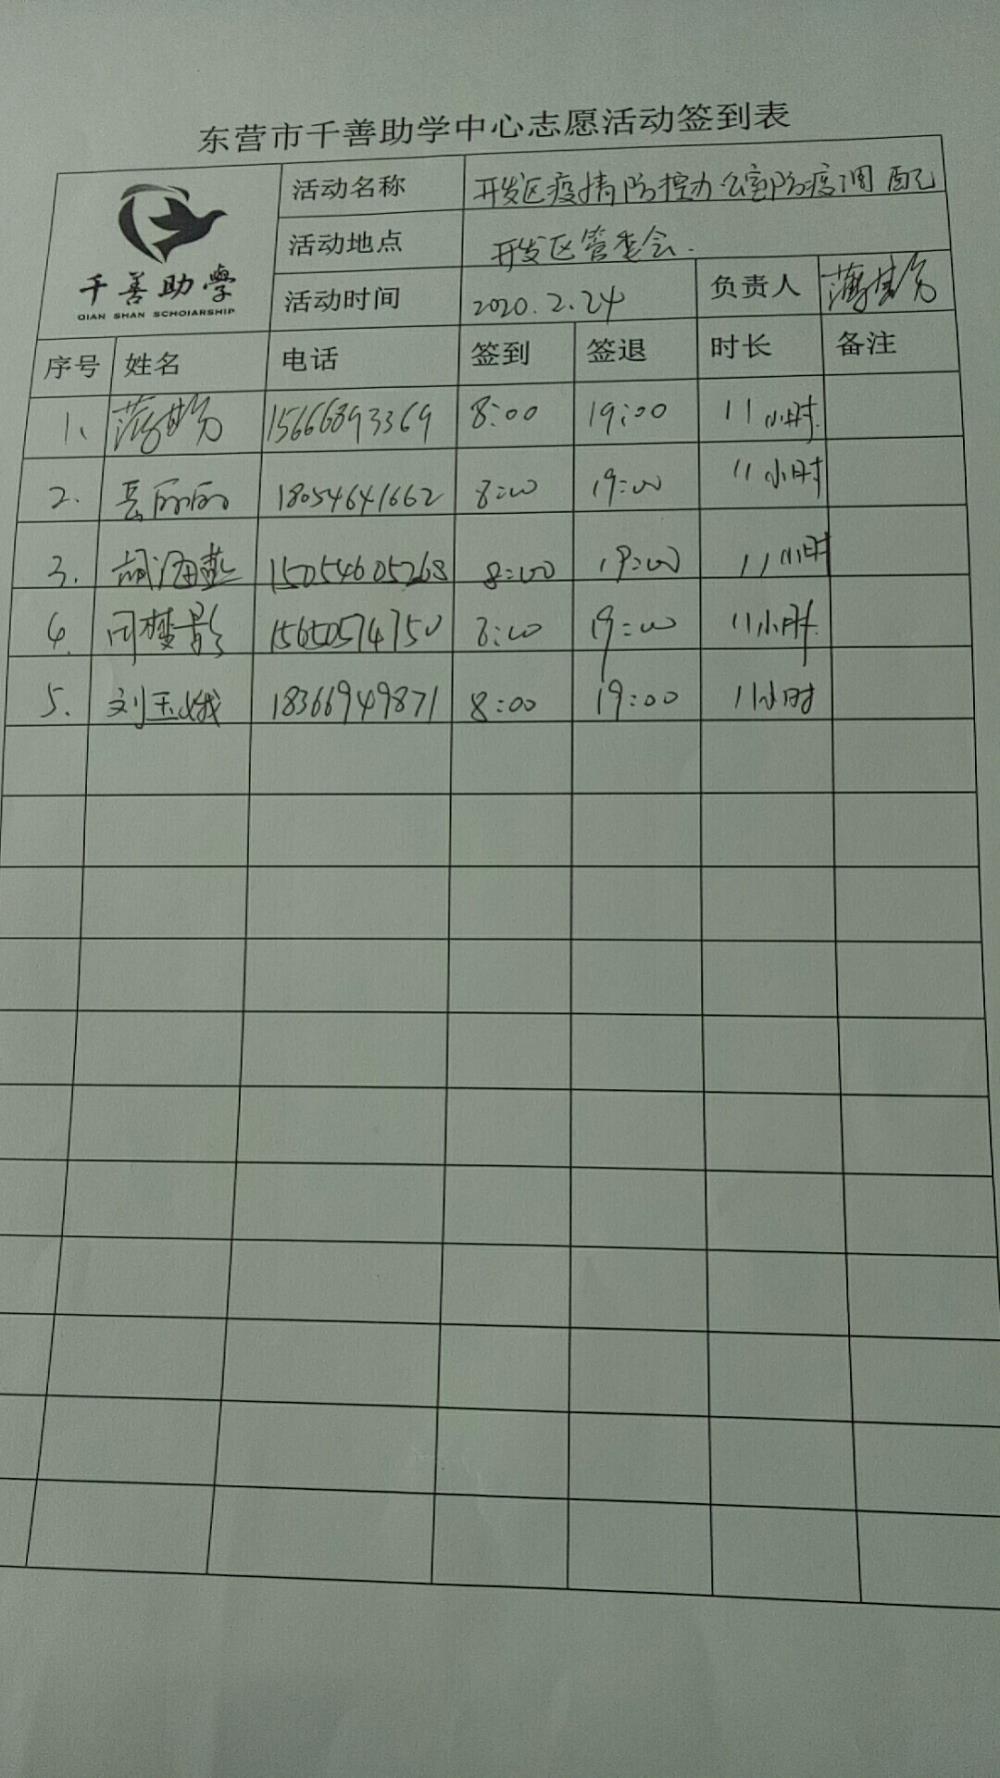 东营市千善助学中心志愿活动签到表
千善助學
QIAN SHAN SCHOIARSHIP
活动名称 开发区疫情防控办公室防疫调配
活动地点 开发区管委会.
活动时间 2020.2.24 负责人
序号 姓名 电话 签到 签退 时长 备注
1、 15666893369 8:00 19:00 11小时.
2. 岳丽丽 18054641662 8:00 19:00 11小时
3. 胡海燕 15054605268 8:00 19:00 11小时
4. 闫梦影 15650574750 8:00 19:00 11小时.
5. 刘玉娥 18366949871 8:00 19:00 11小时